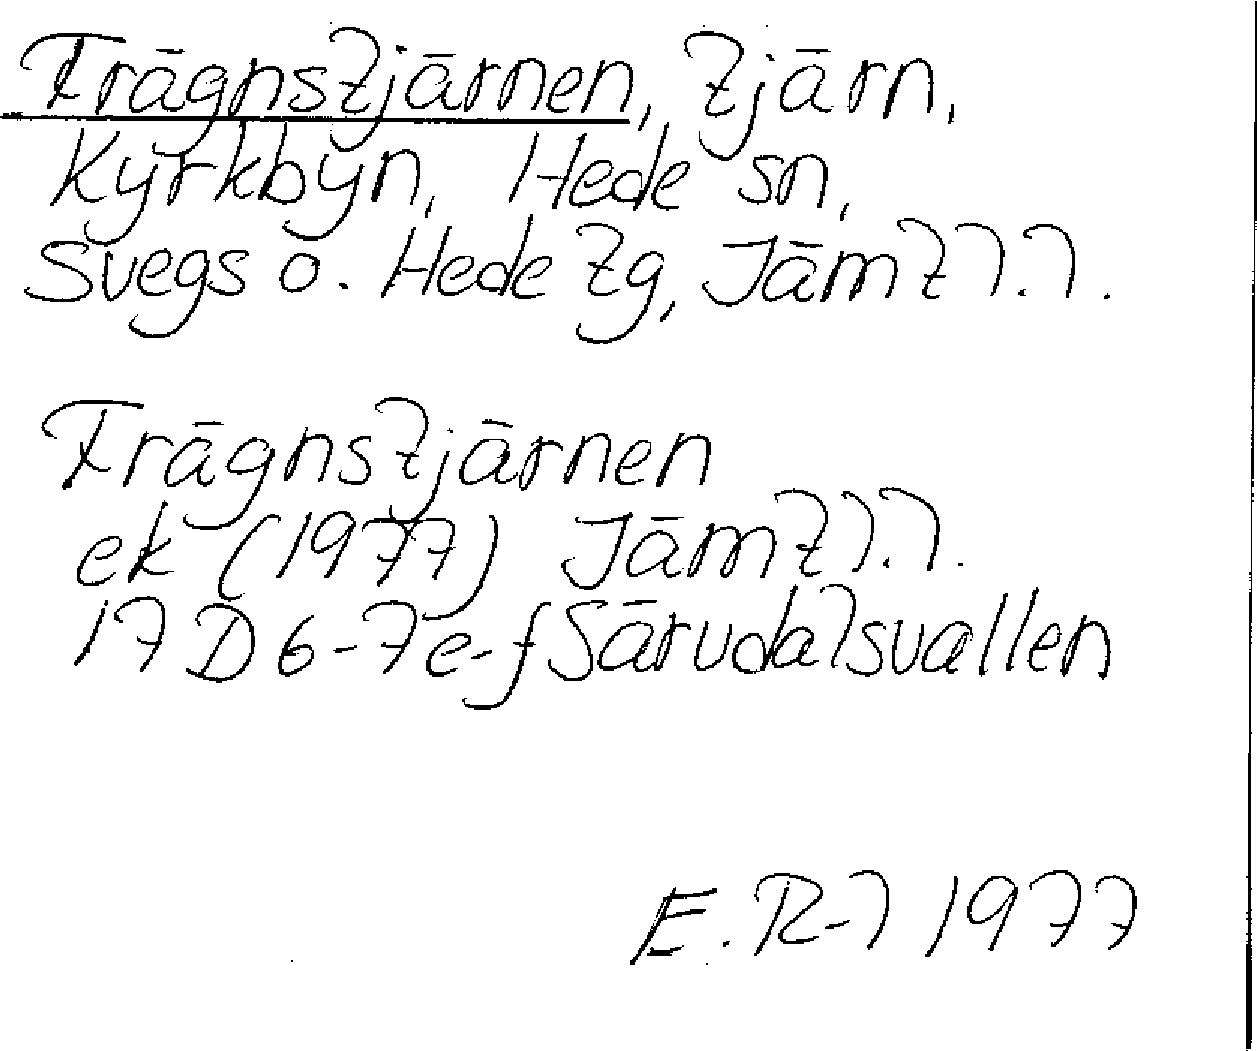 Frägnstjärnen, tjärn,
Kyrkbyn, Hede sn,
Svegs o. Hede tg, Jämtl.l.
Frägnstjärnen
ek (1977) Jämtl.l.
17D 6-7e-f Särvdalsvallen
E. R-l 1977